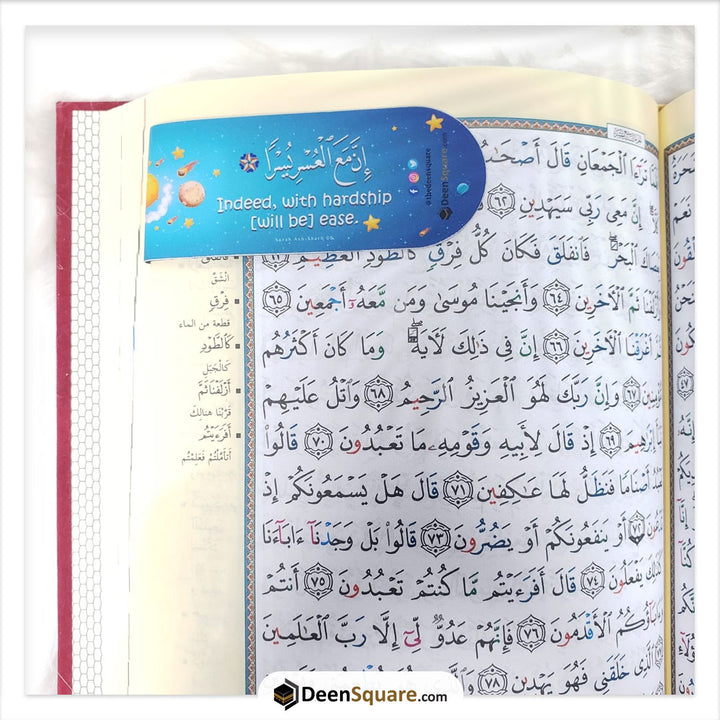 إِنَّ مَعَ ٱلْعُسْرِ يُسْرًا
Indeed, with hardship
[will be] ease.
Surah Ash-Sharh 06
@thedeensquare
DeenSquare.com
تَرَٰٓءَا ٱلْجَمْعَانِ قَالَ أَصْحَٰبُ
إِنَّ مَعِىَ رَبِّى سَيَهْدِينِ ٦٢
ٱلْبَحْرَ فَٱنفَلَقَ فَكَانَ كُلُّ فِرْقٍ كَٱلطَّوْدِ ٱلْعَظِيمِ ٦٣
ثَمَّ ٱلْءَاخَرِينَ ٦٤ وَأَنجَيْنَا مُوسَىٰ وَمَن مَّعَهُۥٓ أَجْمَعِينَ ٦٥
أَغْرَقْنَا ٱلْءَاخَرِينَ ٦٦ إِنَّ فِى ذَٰلِكَ لَءَايَةً ۖ وَمَا كَانَ أَكْثَرُهُم
٦٧ وَإِنَّ رَبَّكَ لَهُوَ ٱلْعَزِيزُ ٱلرَّحِيمُ ٦٨ وَٱتْلُ عَلَيْهِمْ
إِبْرَٰهِيمَ ٦٩ إِذْ قَالَ لِأَبِيهِ وَقَوْمِهِۦ مَا تَعْبُدُونَ ٧٠ قَالُوا۟
أَصْنَامًا فَنَظَلُّ لَهَا عَٰكِفِينَ ٧١ قَالَ هَلْ يَسْمَعُونَكُمْ إِذْ
٧٢ أَوْ يَنفَعُونَكُمْ أَوْ يَضُرُّونَ ٧٣ قَالُوا۟ بَلْ وَجَدْنَآ ءَابَآءَنَا
كَذَٰلِكَ يَفْعَلُونَ ٧٤ قَالَ أَفَرَءَيْتُم مَّا كُنتُمْ تَعْبُدُونَ ٧٥ أَنتُمْ
وَءَابَآؤُكُمُ ٱلْأَقْدَمُونَ ٧٦ فَإِنَّهُمْ عَدُوٌّ لِّىٓ إِلَّا رَبَّ ٱلْعَٰلَمِينَ
ٱلَّذِى خَلَقَنِى فَهُوَ يَهْدِينِ ٧٨
انْشَقَّ
فِرْقٍ
قطعة من الماء
كَٱلطَّوْدِ
كَالْجَبَلِ
أَزْلَفْنَا ثَمَّ
قَرَّبْنَا هنالِكَ
أَفَرَءَيْتُم
أَتَأَمَّلْتُمْ فَعَلِمْتُمْ
DeenSquare.com